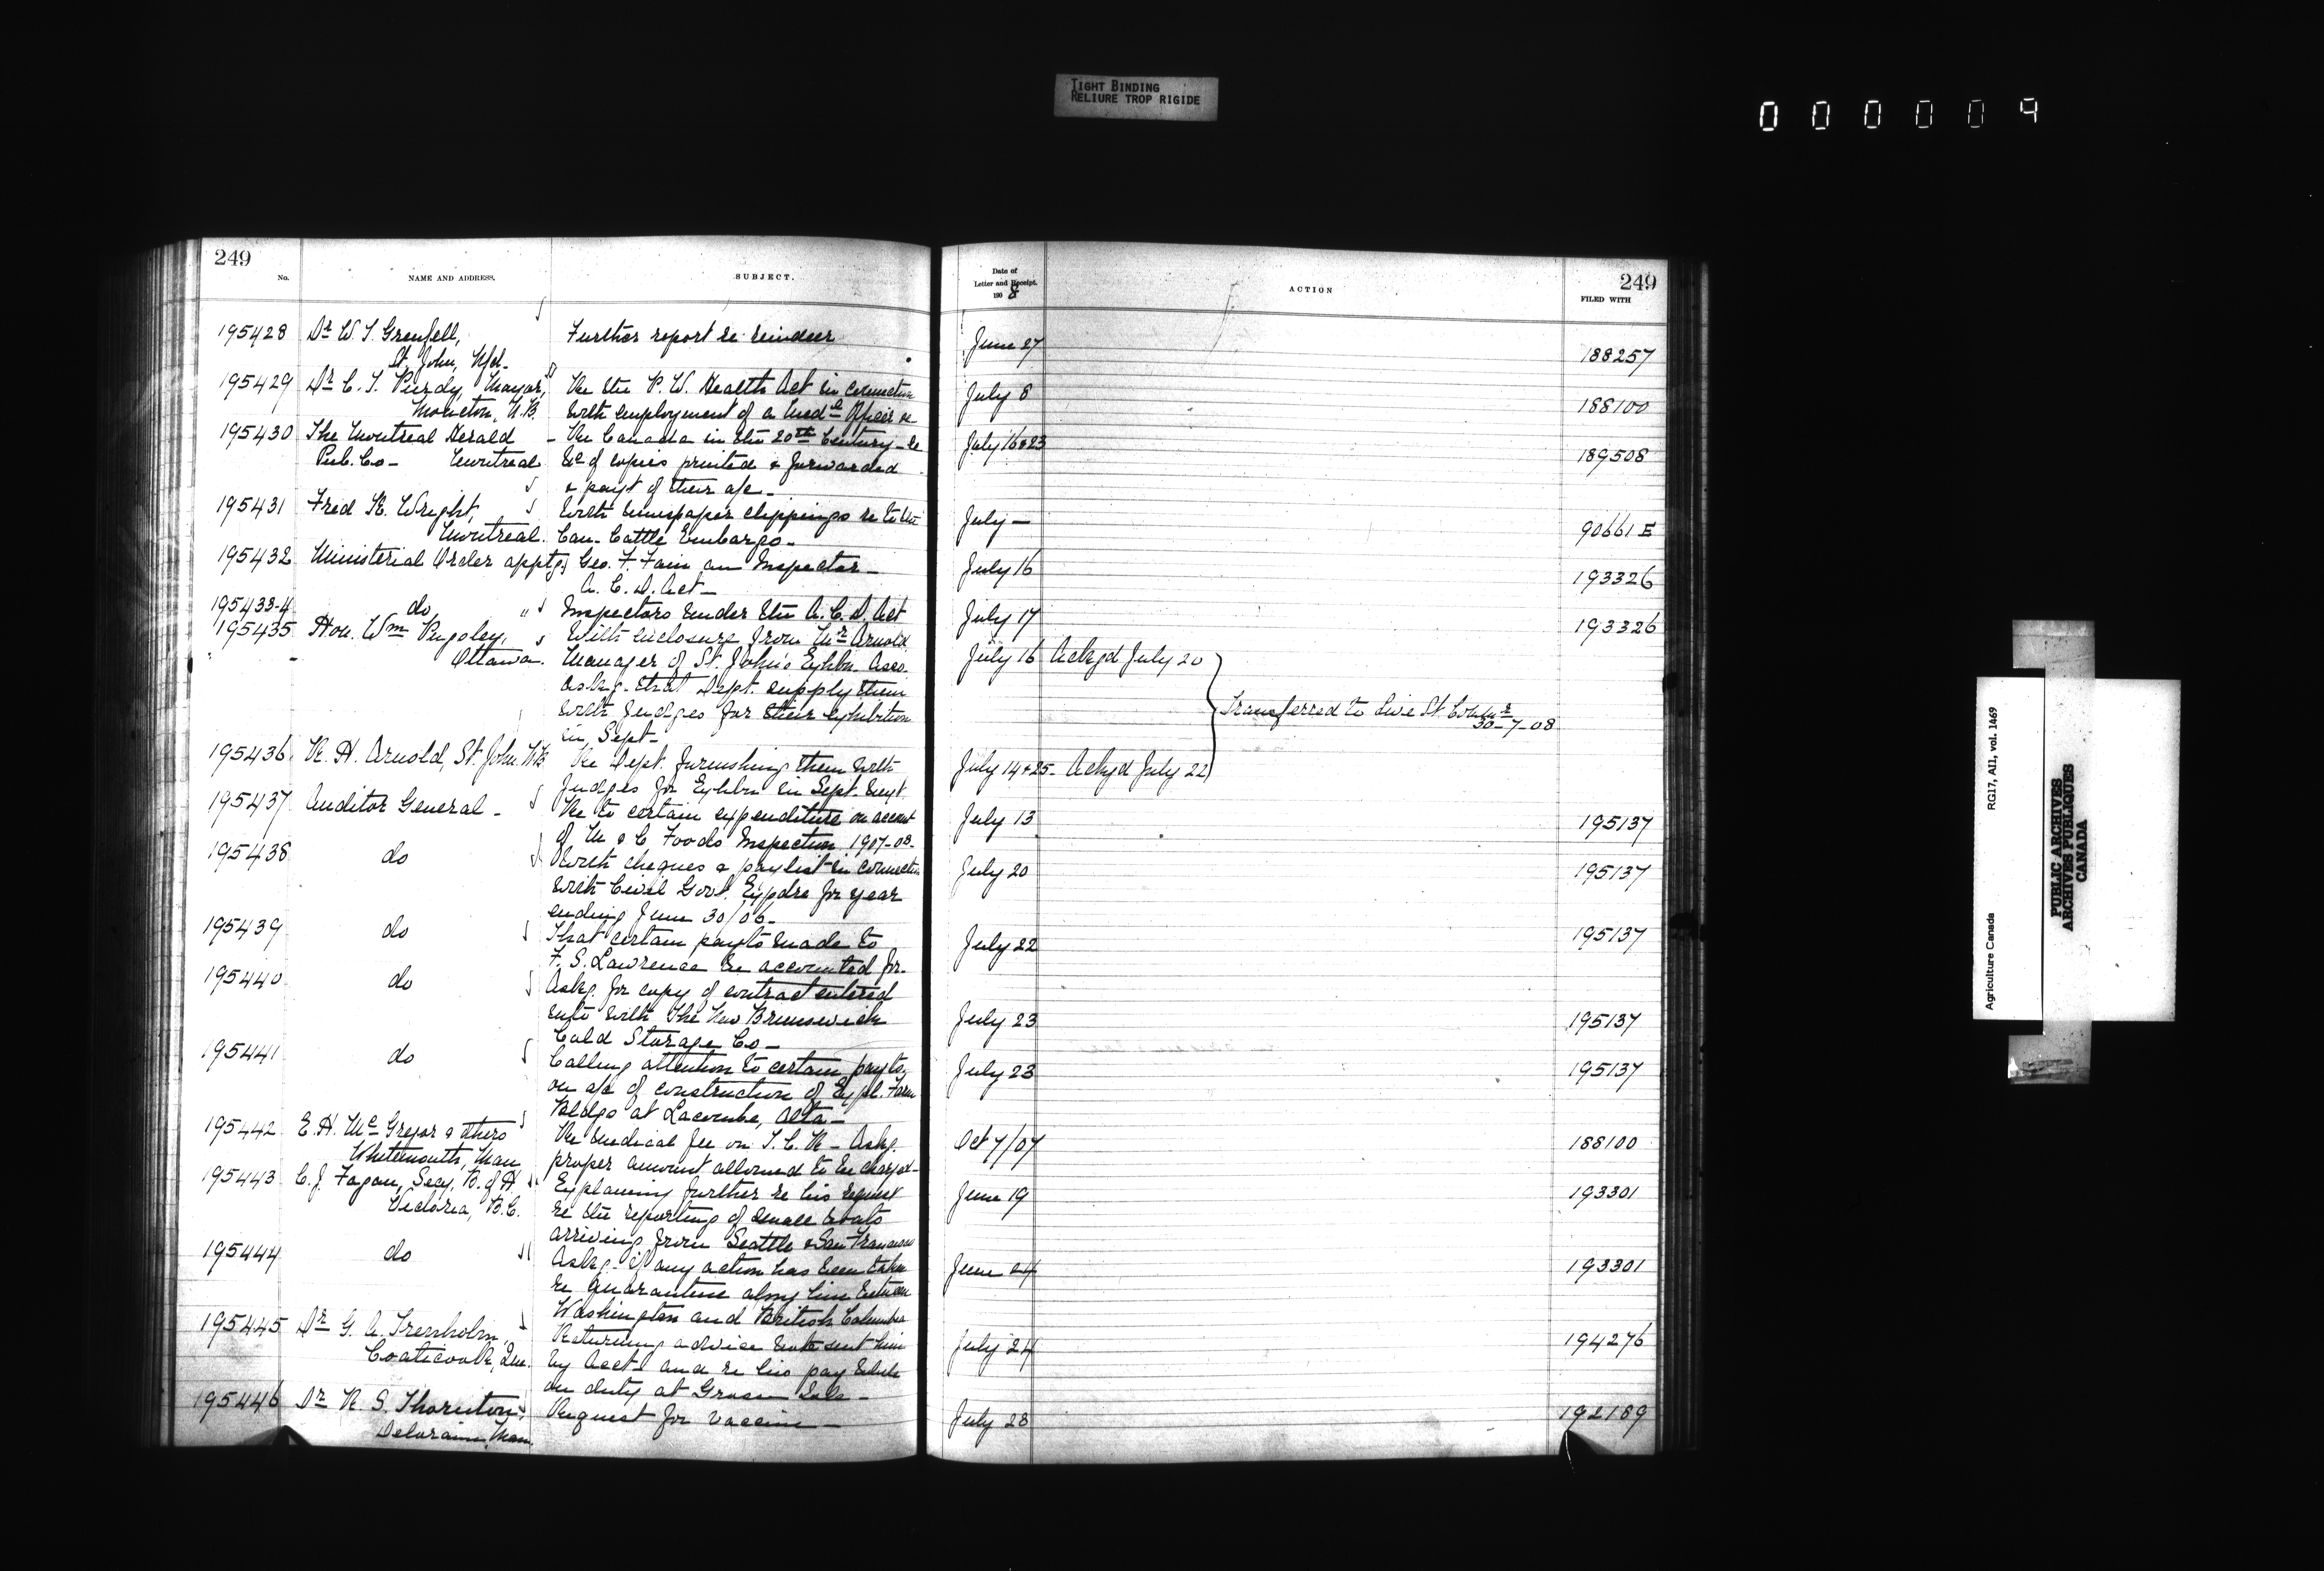 TIGHT BINDING
RELIURE TROP RIGIDE
000009
249
No.
NAME AND ADDRESS.
SUBJECT.
195428 Dr W. T. Grenfell, Further report re reindeer
St. John, Nfd.
195429 Dr C. T. Purdy, Mayor, Re the P. W. Health Act in connection
Moncton, N.B. with employment of a Medl Officer re
195430 The Montreal Herald - Re Canada in the 20th Century - re
Pub. Co - Montreal &c of copies printed & forwarded
& payt of their a/c -
195431 Fred K. Wright, With newspaper clippings re to the
Montreal. Can. Cattle Embargo -
195432 Ministerial Order apptg. Geo. F. Fain an Inspector -
A. C. D. Act -
195433-4 do " Inspectors under the A. C. D. Act
195435 Hon. Wm Pugsley, With enclosure from Mr Arnold
Ottawa. Manager of St. John's Exhbn Asso.
Askg. that Dept. supply them
with judges for their exhibition
in Sept -
195436 R. H. Arnold, St. John N.B. Re Dept. furnishing them with
Judges for Exhbn in Sept. next
195437 Auditor General - Re to certain expenditure on account
of M & C Foods Inspection 1907-08 -
195438 do With cheques & paylist in connection
with Civil Govt. Expdre for year
ending June 30/06 -
195439 do That certain payts made to
F. S. Lawrence be accounted for -
195440 do Askg. for copy of contract entered
into with The New Brunswick
Cold Storage Co -
195441 do Calling attention to certain payts.
on a/c of construction of Expl. Farm
Bldgs at Lacombe, Alta -
195442 E. H. McGregor & others Re medical fee on T. C. R - Askg.
Whitemouth, Man proper amount allowed to be charged -
195443 C. J. Fagan, Secy, B. of H. Explaining further re his request
Victoria, B.C. re the reporting of small boats
arriving from Seattle & San Francisco
195444 do Askg. if any action has been taken
re quarantine along line between
Washington and British Columbia
195445 Dr G. A. Trenholm, Returning advice note sent him
Coaticook, Que. by Acct and re his pay while
on duty at Grosse Isle -
195446 Dr R. S. Thornton, Request for vaccine -
Deloraine, Man.
249
Date of
Letter and Receipt.
1908
ACTION
FILED WITH
June 27 188257
July 8 188100
July 16 & 23 189508
July - 90661 E
July 16 193326
July 17 193326
July 16 Ackgd July 20
Transferred to Live St. Commr
30-7-08
July 14 & 25 - Ackgd July 22
July 13 195137
July 20 195137
July 22 195137
July 23 195137
July 23 195137
Oct 7/07 188100
June 19 193301
June 24 193301
July 24 194276
July 28 192189
Agriculture Canada RG17, AII, vol. 1469
PUBLIC ARCHIVES
ARCHIVES PUBLIQUES
CANADA